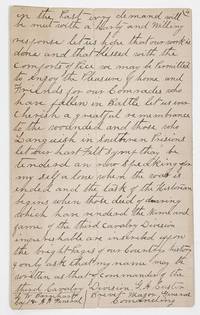 in the Past every demand will
be met with a hearty and willing
response let us hope that our work is
done and that Blessed with the
Comforts of Peace we may be Permitted
to Enjoy the Pleasures of home and
Friends for our Comrades who
have fallen in Battle let us ever
cherish a greatful remembrance
to the wounded and those who
Languish in Southern Prisons
let our heart felt Sympathy be
tendered an now Speaking for
my self alone when the war is
ended and the task of the Historian
begins when those deeds of daring
which have rendered the name and
fame of the third Cavalry Division
imperishable are inscribed upon
the bright pages of our Countrys history
I only ask that my name may be
written as that of Commander of the
third Cavalry Division G A Custer
Brevet Major General
Commanding